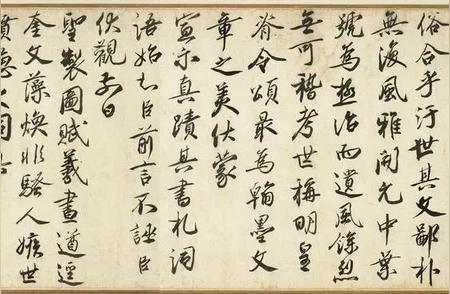 俗合乎汙世其文鄙朴
無風雅開元中葉
號為極治而遺風餘烈
無可稽考世稱明皇
脊令頌最為翰墨文
章之美伏蒙
宣示真蹟其書札詞
語始知臣前言不誣臣
伏觀日
聖製圖賦羲畫遒逕
奎文藻煥非騷人嫉世